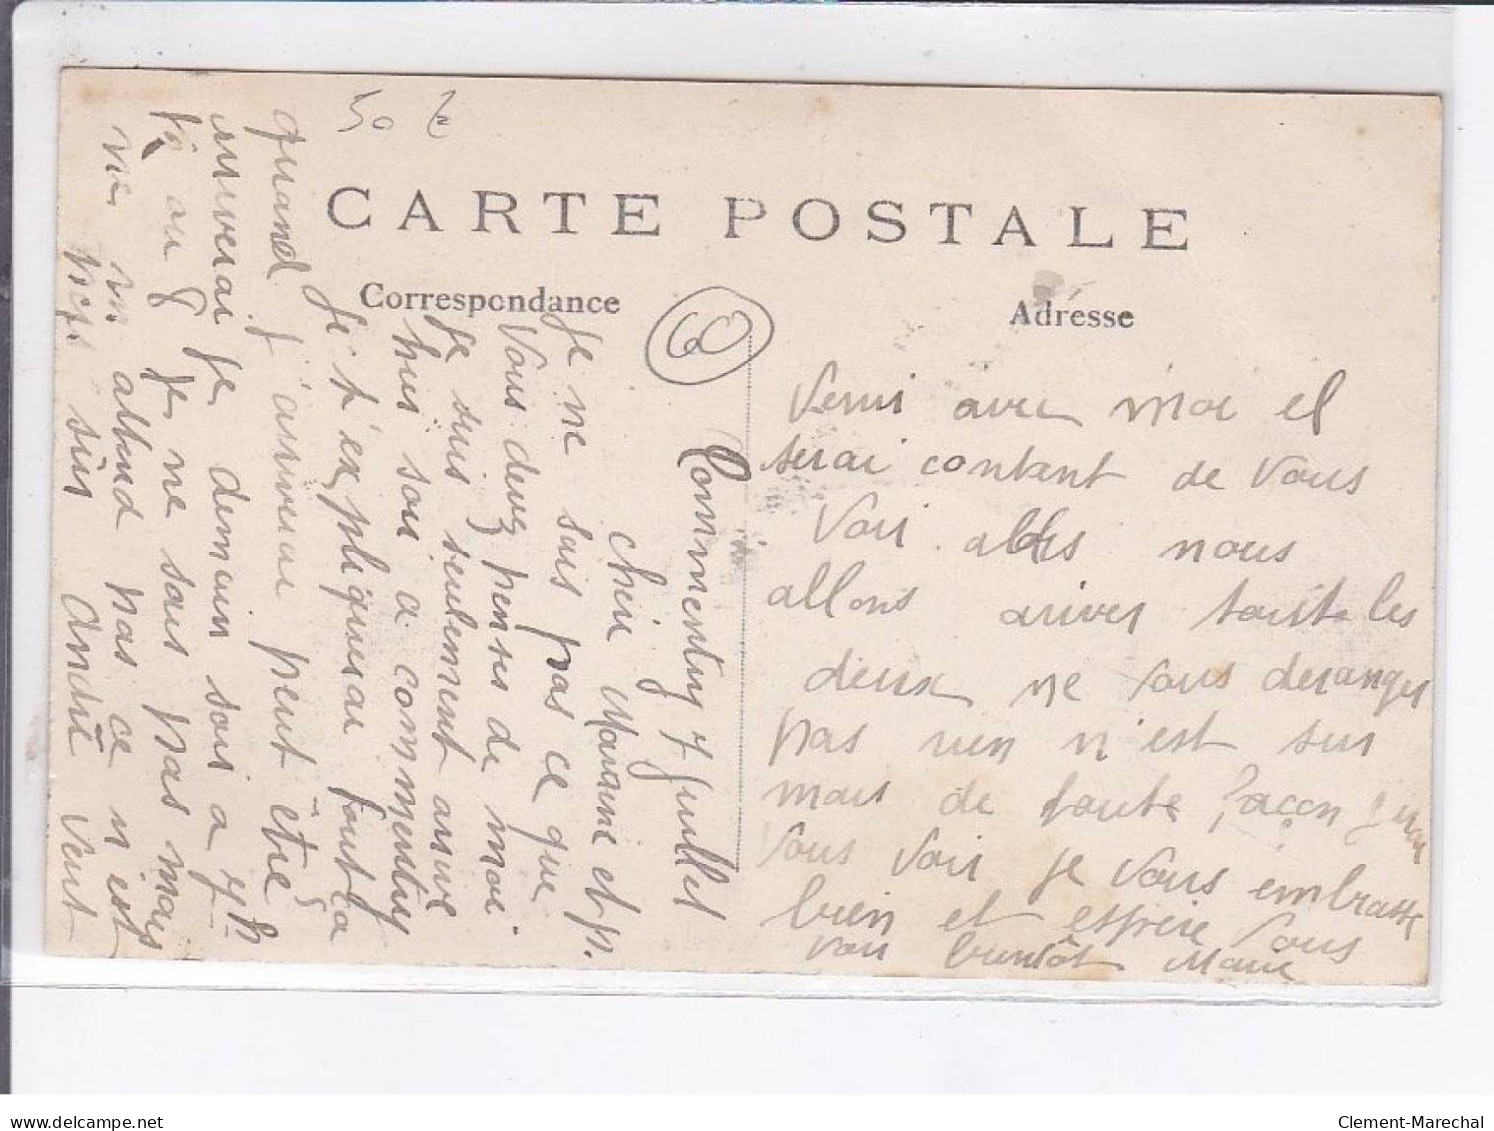 50 €
CARTE POSTALE
Correspondance
60
Adresse
Commentry 7 Juillet
chere Maraine et p.
Je ne sais pas ce que
Vous devez penses de moi
Je suis seulement arrive
hier soir a commentry
Je t'expliquerai tout ca
quand j'arriverai peut être
arriverai je demain soir a 7h
ou 8 Je ne sais pas mais
ne m attend pas ce n'est
pas sûr André veut
Venir avec moi et
serai content de Vous
Voir alors nous
allons arriver toute les
deux ne Vous deranger
pas rien n'est sur
mais de toute façon
Vous Voir je Vous embrasse
bien et espère Vous
voir bientôt Marie
delcampe.net
Clement-Marechal